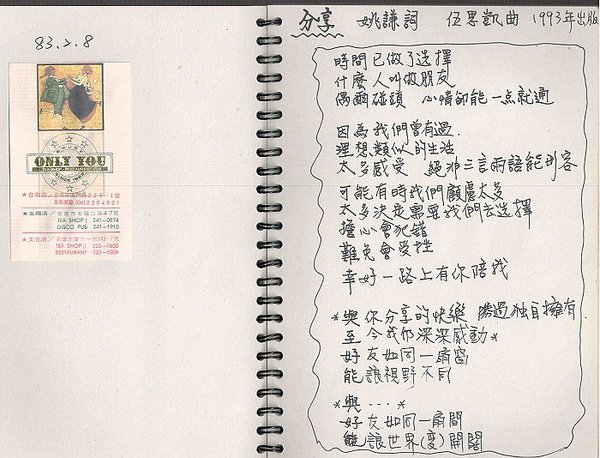 83.2.8
ONLY YOU
★台南店/
(06)2204921
★高雄店/高雄市五福二路47號
TEA SHOP] 241-0574
DISCO PUB 241-1910
★文化店/
RESTAURANT 222-5006
分享 姚謙詞 伍思凱曲 1993年出版
時間已做了選擇
什麼人叫做朋友
偶爾碰頭 心情卻能一点就通
因為我們曾有過
理想類似的生活
太多感受 絕非三言兩語能形容
可能有時我們顧慮太多
太多決定需要我們去選擇
擔心會犯錯
難免會受挫
幸好一路上有你陪我
*與你分享的快樂 勝過独自擁有
至今我仍深深感動*
好友如同一扇窗
能讓視野不同
*與...*
好友如同一扇門
能讓世界(变)開闊